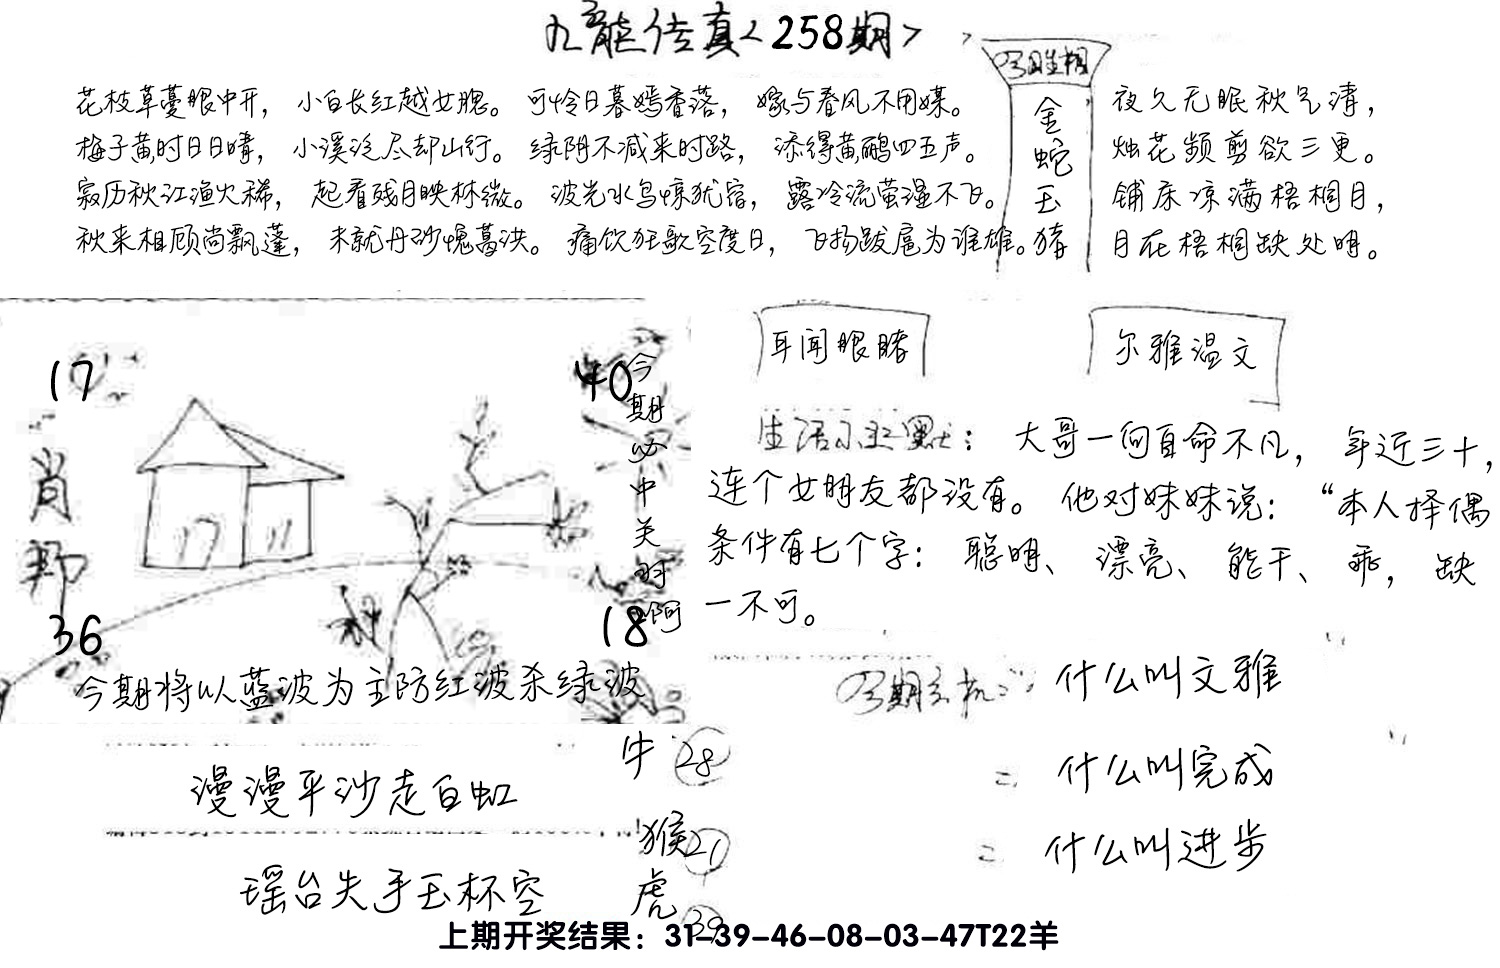 九龙传真<258期>
今期生相
花枝草蔓眼中开，小白长红越女腮。可怜日暮嫣香落，嫁与春风不用媒。
梅子黄时日日晴，小溪泛尽却山行。绿阴不减来时路，添得黄鹂四五声。
寂历秋江渔火稀，起看残月映林微。波光水鸟惊犹宿，露冷流萤湿不飞。
秋来相顾尚飘蓬，未就丹砂愧葛洪。痛饮狂歌空度日，飞扬跋扈为谁雄。
金
蛇
玉
猪
夜久无眠秋气清，
烛花频剪欲三更。
铺床凉满梧桐月，
月在梧桐缺处明。
17
40
肖
那
36
18
今
期
必
中
关
对
啊
今期将以蓝波为主防红波杀绿波
耳闻眼睹
尔雅温文
生活小幽默：大哥一向自命不凡，年近三十，
连个女朋友都没有。他对妹妹说：“本人择偶
条件有七个字：聪明、漂亮、能干、乖，缺
一不可。
今期玄机：什么叫文雅
= 什么叫完成
= 什么叫进步
漫漫平沙走白虹
瑶台失手玉杯空
牛 28
猴 21
虎 39
上期开奖结果：31-39-46-08-03-47T22羊